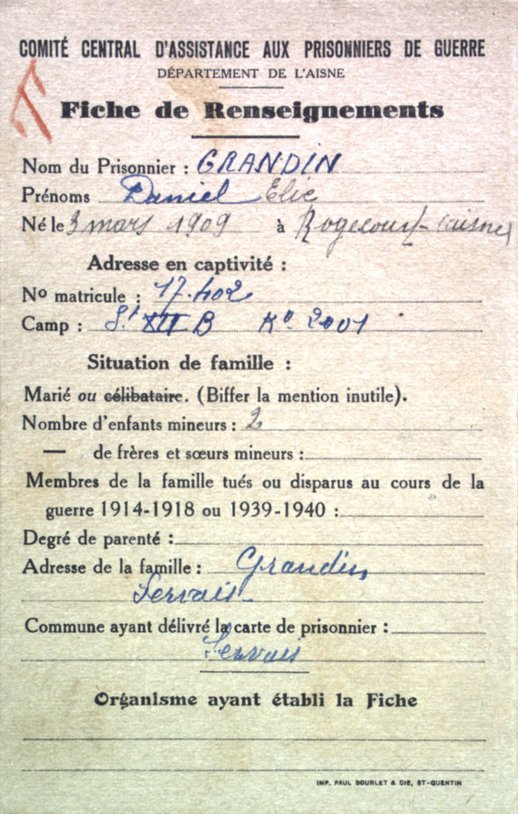 COMITÉ CENTRAL D'ASSISTANCE AUX PRISONNIERS DE GUERRE
DÉPARTEMENT DE L'AISNE
Fiche de Renseignements
Nom du Prisonnier : GRANDIN
Prénoms Daniel Elie
Né le 3 mars 1909 à Rogecourt-Aisne
Adresse en captivité :
No matricule : 17.402
Camp : St XII B Ko 2001
Situation de famille :
Marié ou célibataire. (Biffer la mention inutile).
Nombre d'enfants mineurs : 2
— de frères et sœurs mineurs :
Membres de la famille tués ou disparus au cours de la
guerre 1914-1918 ou 1939-1940 :
Degré de parenté :
Adresse de la famille : Grandin
Servais
Commune ayant délivré la carte de prisonnier :
Servais
Organisme ayant établi la Fiche
IMP. PAUL BOURLET & CIE, ST-QUENTIN